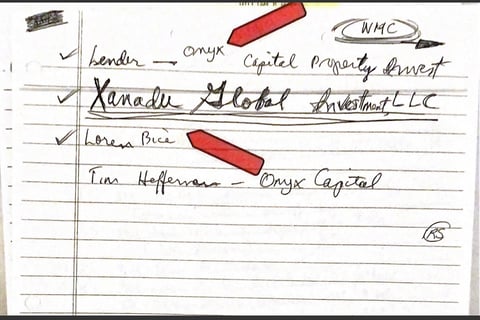 WMC
✓ Lender — Onyx Capital Property Invest
✓ Xanadu Global Investment, LLC
✓ Loren Bice
Tim Heffernan — Onyx Capital
RS